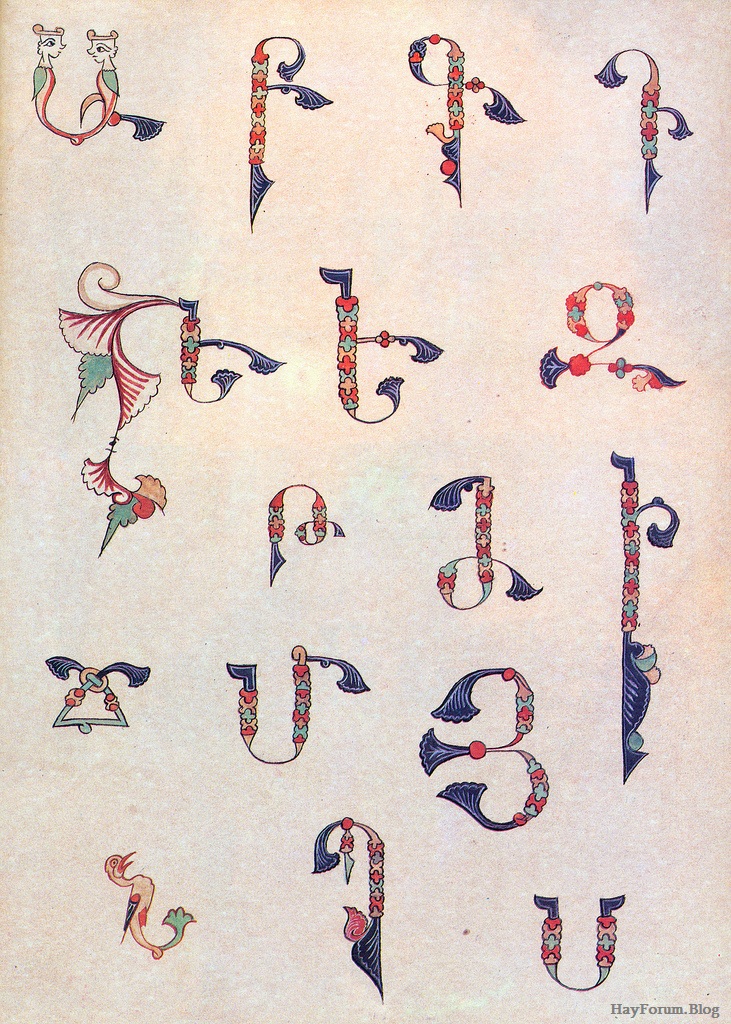 Ա Բ Գ Դ
Ե Է Զ
Թ Ձ Ի
Ճ Մ Յ
Ն Պ Ս
HayForum.Blog